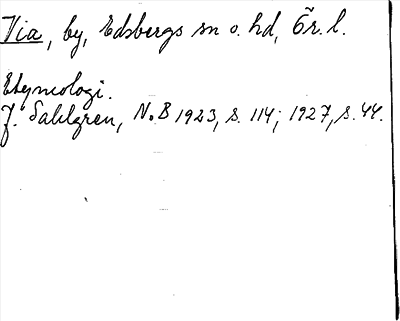 Via, by, Edsbergs sn o. hd, Ör. l.
Etymologi.
J. Sahlgren, N.B 1923, s. 114; 1927, s. 44.